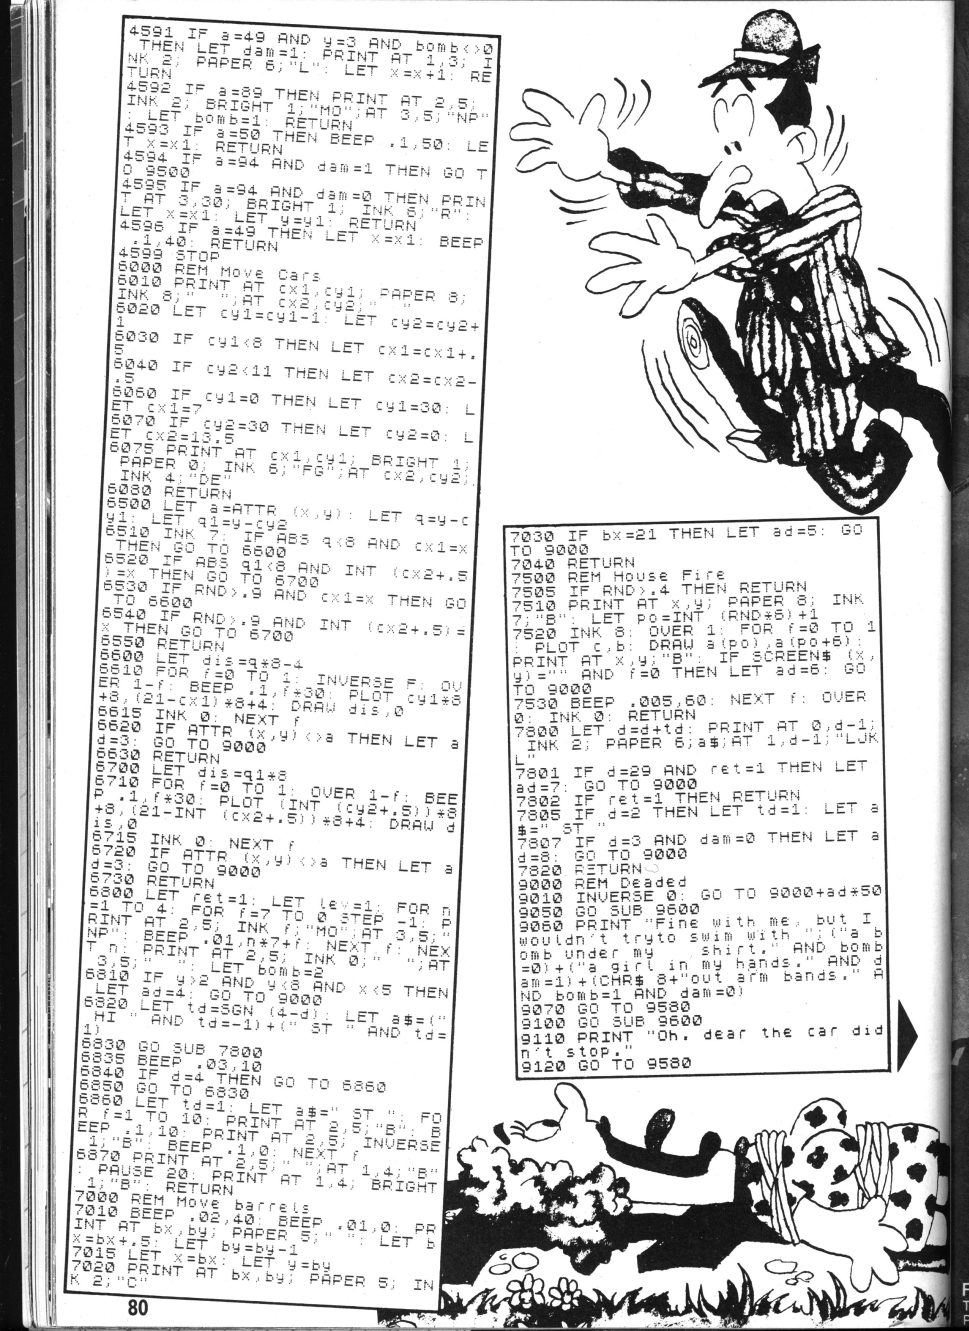 4591 IF a=49 AND y=3 AND bomb<>0
 THEN LET dam=1: PRINT AT 1,3; I
NK 2; PAPER 6;"L": LET x=x+1: RE
TURN
4592 IF a=89 THEN PRINT AT 2,5;
INK 2; BRIGHT 1;"MO";AT 3,5;"NP"
: LET bomb=1: RETURN
4593 IF a=50 THEN BEEP .1,50: LE
T x=x1: RETURN
4594 IF a=94 AND dam=1 THEN GO T
O 9500
4595 IF a=94 AND dam=0 THEN PRIN
T AT 3,30; BRIGHT 1; INK 6;"R":
LET x=x1: LET y=y1: RETURN
4596 IF a=49 THEN LET x=x1: BEEP
 .1,40: RETURN
4599 STOP
6000 REM Move Cars
6010 PRINT AT cx1,cy1; PAPER 8;
INK 8;"  ";AT cx2,cy2;"  "
6020 LET cy1=cy1-1: LET cy2=cy2+
1
6030 IF cy1<8 THEN LET cx1=cx1+.
5
6040 IF cy2<11 THEN LET cx2=cx2-
.5
6060 IF cy1=0 THEN LET cy1=30: L
ET cx1=7
6070 IF cy2=30 THEN LET cy2=0: L
ET cx2=13.5
6075 PRINT AT cx1,cy1; BRIGHT 1;
 PAPER 0; INK 6;"FG";AT cx2,cy2;
 INK 4;"DE"
6080 RETURN
6500 LET a=ATTR (x,y): LET q=y-c
y1: LET q1=y-cy2
6510 INK 7: IF ABS q<8 AND cx1=x
 THEN GO TO 6600
6520 IF ABS q1<8 AND INT (cx2+.5
)=x THEN GO TO 6700
6530 IF RND>.9 AND cx1=x THEN GO
 TO 6600
6540 IF RND>.9 AND INT (cx2+.5)=
x THEN GO TO 6700
6550 RETURN
6600 LET dis=q*8-4
6610 FOR f=0 TO 1: INVERSE F: OV
ER 1-f: BEEP .1,f*30: PLOT cy1*8
+8,(21-cx1)*8+4: DRAW dis,0
6615 INK 0: NEXT f
6620 IF ATTR (x,y)<>a THEN LET a
d=3: GO TO 9000
6630 RETURN
6700 LET dis=q1*8
6710 FOR f=0 TO 1: OVER 1-f: BEE
P .1,f*30: PLOT (INT (cy2+.5))*8
+8,(21-INT (cx2+.5))*8+4: DRAW d
is,0
6715 INK 0: NEXT f
6720 IF ATTR (x,y)<>a THEN LET a
d=3: GO TO 9000
6730 RETURN
6800 LET ret=1: LET lev=1: FOR n
=1 TO 4: FOR f=7 TO 0 STEP -1: P
RINT AT 2,5; INK f;"MO";AT 3,5;"
NP": BEEP .01,n*7+f: NEXT f: NEX
T n: PRINT AT 2,5; INK 0;"  ";AT
 3,5;"  ": LET bomb=2
6810 IF y>2 AND y<8 AND x<5 THEN
 LET ad=4: GO TO 9000
6820 LET td=SGN (4-d): LET a$=("
 HI " AND td=-1)+(" ST " AND td=
1)
6830 GO SUB 7800
6835 BEEP .03,10
6840 IF d=4 THEN GO TO 6860
6850 GO TO 6830
6860 LET td=1: LET a$=" ST ": FO
R f=1 TO 10: PRINT AT 2,5;"B": B
EEP .1,10: PRINT AT 2,5; INVERSE
 1;"B": BEEP .1,0: NEXT f
6870 PRINT AT 2,5;" ";AT 1,4;"B"
: PAUSE 20: PRINT AT 1,4; BRIGHT
 1;"B": RETURN
7000 REM Move barrels
7010 BEEP .02,40: BEEP .01,0: PR
INT AT bx,by; PAPER 5;" ": LET b
x=bx+.5: LET by=by-1
7015 LET x=bx: LET y=by
7020 PRINT AT bx,by; PAPER 5; IN
K 2;"C"
80
7030 IF bx=21 THEN LET ad=5: GO
TO 9000
7040 RETURN
7500 REM House Fire
7505 IF RND>.4 THEN RETURN
7510 PRINT AT x,y; PAPER 8; INK
7;"B": LET po=INT (RND*6)+1
7520 INK 8: OVER 1: FOR f=0 TO 1
: PLOT c,b: DRAW a(po),a(po+6):
PRINT AT x,y;"B": IF SCREEN$ (x,
y)="" AND f=0 THEN LET ad=6: GO
TO 9000
7530 BEEP .005,60: NEXT f: OVER
0: INK 0: RETURN
7800 LET d=d+td: PRINT AT 0,d-1;
 INK 2; PAPER 6;a$;AT 1,d-1;"LJK
L"
7801 IF d=29 AND ret=1 THEN LET
ad=7: GO TO 9000
7802 IF ret=1 THEN RETURN
7805 IF d=2 THEN LET td=1: LET a
$=" ST "
7807 IF d=3 AND dam=0 THEN LET a
d=8: GO TO 9000
7820 RETURN
9000 REM Deaded
9010 INVERSE 0: GO TO 9000+ad*50
9050 GO SUB 9600
9060 PRINT "Fine with me, but I
wouldn't tryto swim with ";("a b
omb under my     shirt." AND bomb
=0)+("a girl in my hands." AND d
am=1)+(CHR$ 8+"out arm bands." A
ND bomb=1 AND dam=0)
9070 GO TO 9580
9100 GO SUB 9600
9110 PRINT "Oh, dear the car did
n't stop."
9120 GO TO 9580